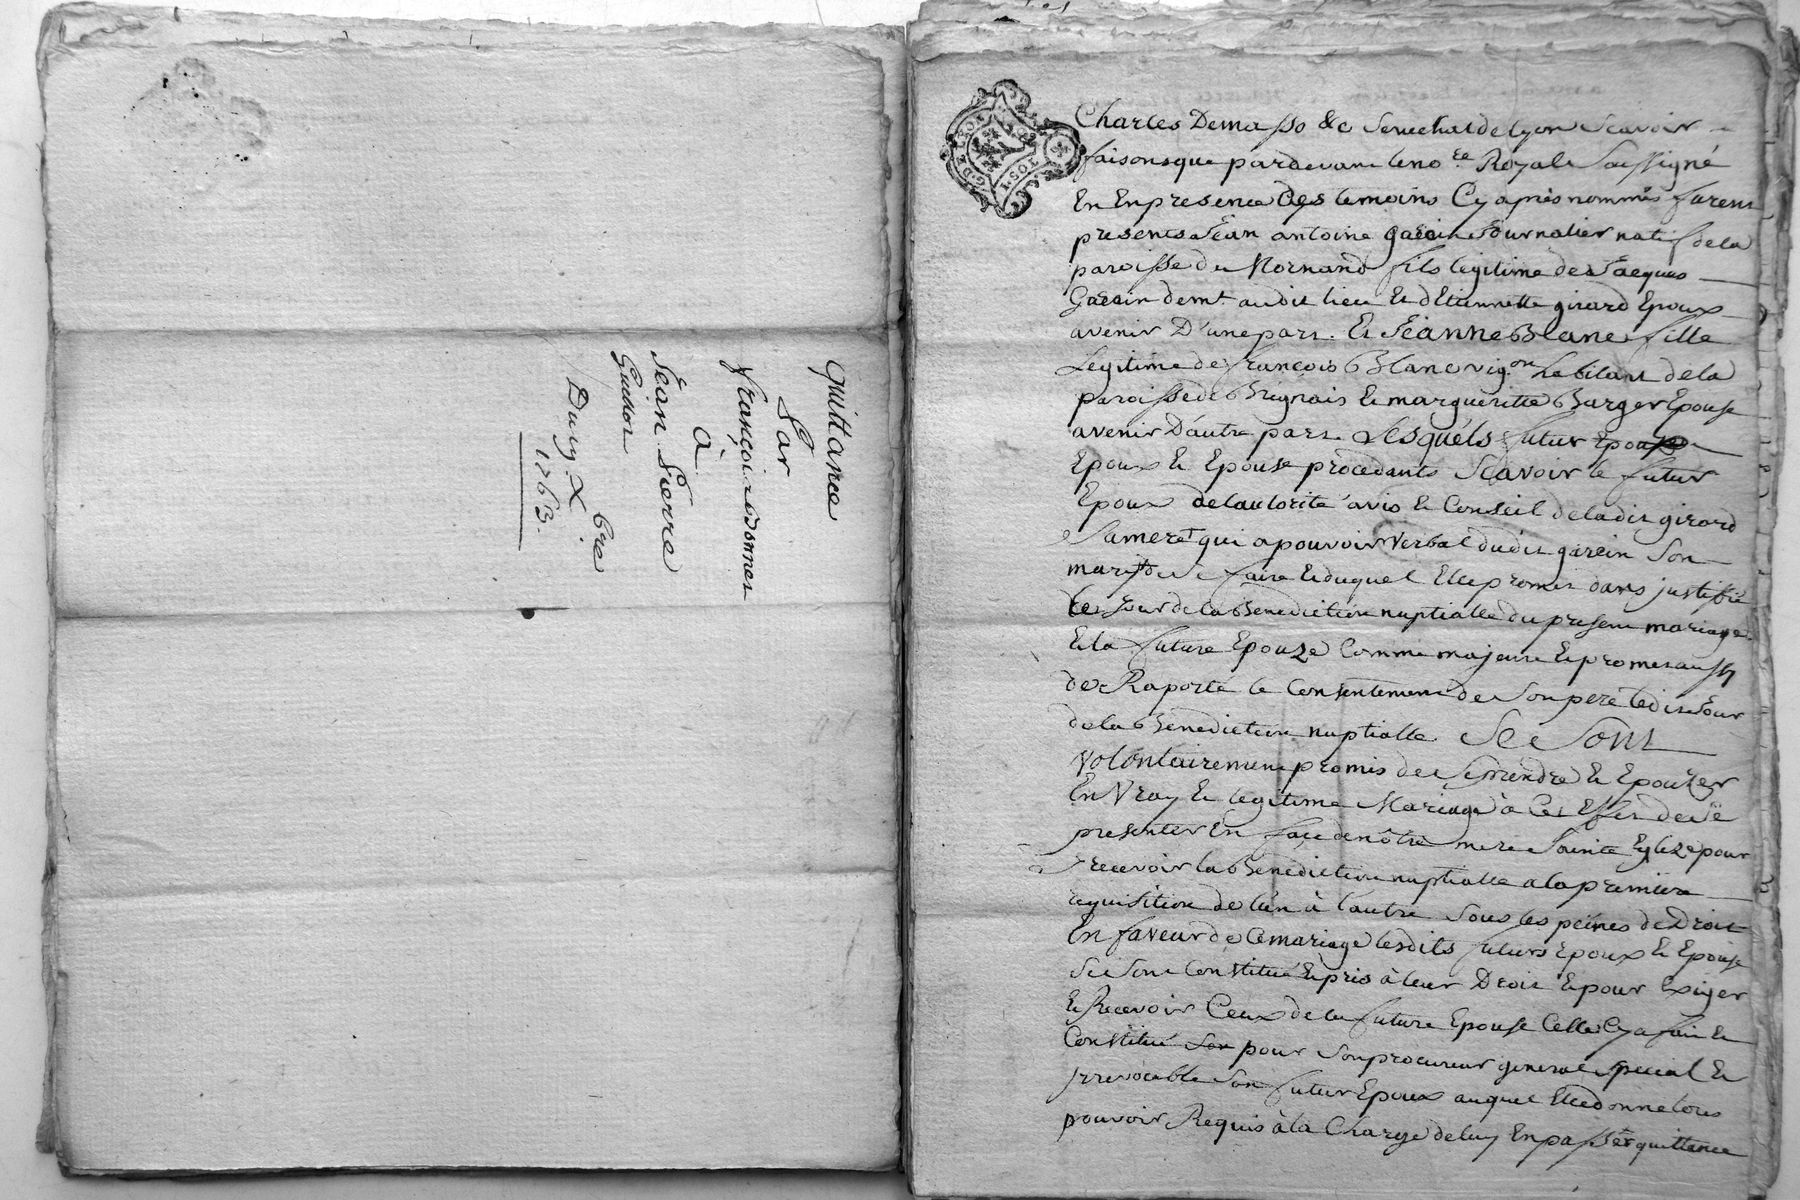 quittance
Par
François Bonnet
à
Jean Pierre
Guichon
Du 19 Xbre
1763.
G. DE LYON
Charles Demasso &c Senechal de lyon Scavoir
faisons que pardevant le no.re Royal Soussigné
En Enpresence des temoins Cy après nommés furent
presents Jean antoine garcin Journalier natif de la
paroisse de Mornand fils légitime de Jacques
Garcin demt audit lieu Et d'Etiennette girard Epoux
avenir D'une part. Et Jeanne Blanc fille
Legitime de françois Blanc vig.on habitant de la
paroisse de Brignais Et marguéritte Burger Epouse
avenir D'autre part. Lesquéls futur
Epoux Et Epouse procedants Scavoir le futur
Epoux de l'autorité avis Et Conseil de ladit girard
Sa mere qui a pouvoir verbal dudit garcin Son
mary de ce faire Et duquel Elle promet dans justifié
le Jour de la Benediction nuptialle du present mariage
Et la future Epouze Comme majeure Et promet aussy
de Raporté le Consentement de Son pere ledit Jour
de la Benediction nuptialle Se Sont
volontairement promis de Se prendre Et Epouzer
En Vray Et legitime Mariage à Cet Effet de Së
presenter En façe de nôtre mere Sainte Eglize pour
y recevoir la Benediction nuptialle a la premiere
requisition de l'un à l'autre Sous les peines de Droit
En faveur de Ce mariage lesdits futurs Epoux Et Epouse
Se Sont Constitué Et pris à leur Droit Et pour Exiger
Et Recevoir Ceux de la future Epouse Celle Cy a fait Et
Constitué Son pour Son procureur general Special Et
jrrevocable Son futur Epoux auquel Elle donne tous
pouvoir Requis à la Charge de luy En passer quittance